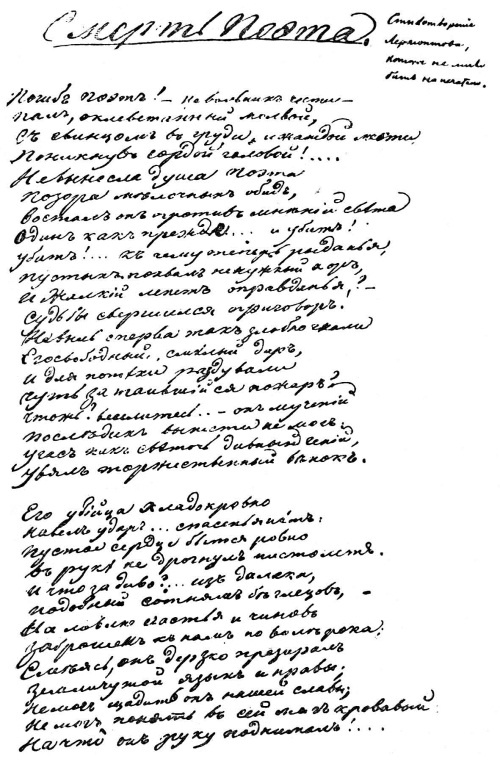 Смерть Поэта.
Стихотвореніе
Лермонтова,
которое не
быть напечатано.
Погибъ поэтъ! – невольникъ чести –
Палъ, оклеветанный молвой,
Съ свинцомъ въ груди, и жаждой мести
Поникнувъ гордой головой!....
Не вынесла душа поэта
Позора мѣлочныхъ обидъ,
Возсталъ онъ противъ мнѣній свѣта
Одинъ какъ прежде... и убитъ!
убитъ!... къ чему теперь рыданья,
пустыхъ похвалъ ненужный хоръ,
И жалкій лепетъ оправданья, ? –
Судьбы свершился приговоръ.
Не выль сперва такъ злобно гнали
Его свободный, смѣлый даръ,
и для потѣхи раздували
чуть затаившійся пожаръ?
чтожъ? веселитесь.. – онъ мученій
послѣднихъ вынести не могъ:
угасъ какъ свѣточь дивный геній,
увялъ торжественный вѣнокъ.
Его убійца хладокровно
навелъ ударъ... спасенья нѣтъ:
пустое сердце бьется ровно
въ рукѣ не дрогнулъ пистолетъ.
и что за диво?... изъ далека,
подобный сотнямъ бѣглецовъ, –
На ловлю счастья и чиновъ
Заброшенъ къ намъ по волѣ рока;
Смѣясь, онъ дерзко презиралъ
Земли чужой языкъ и нравы;
Не могъ щадить онъ нашей славы;
Не могъ понять въ сей мигъ кровавый
На что онъ руку поднималъ!....